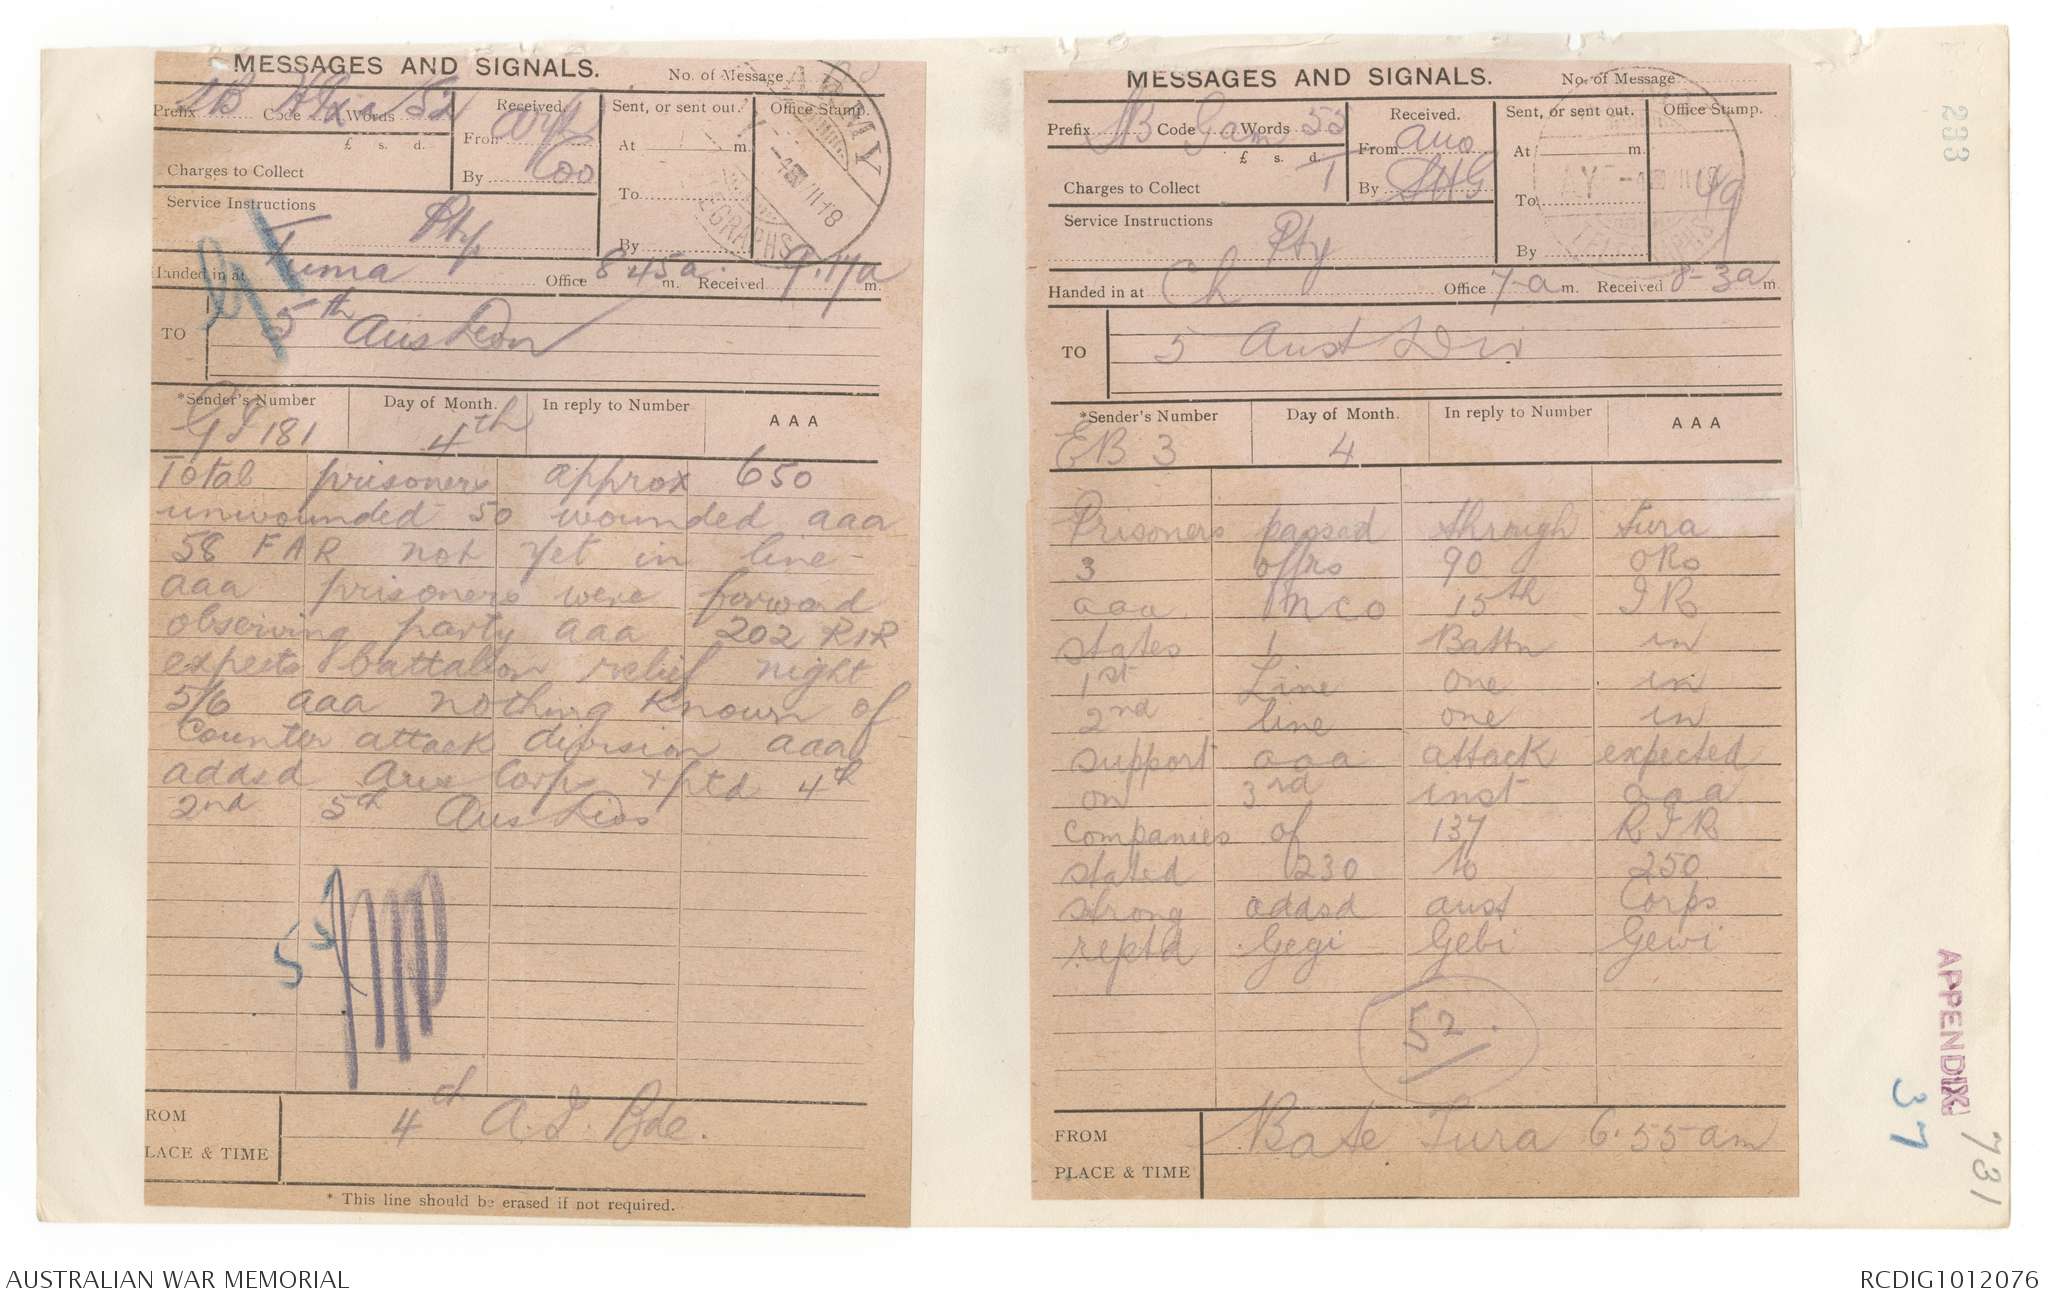 MESSAGES AND SIGNALS.
No. of Message
Prefix SB Code Words 52
£ s. d.
Charges to Collect
Received.
From
By
Sent, or sent out.
At m.
To
By
Office Stamp.
ARMY
TELEGRAPHS
Service Instructions Pty
Handed in at Fuma Office 8 45a. m. Received 9.17a m.
TO 5th Aus Don
*Sender's Number Day of Month. In reply to Number AAA
GI 181 4th
Total prisoners approx 650
unwounded 50 wounded aaa
58 FAR not yet in line
aaa prisoners were forward
observing party aaa 202 RIR
expects battalion relief night
5/6 aaa nothing known of
Counter attack division aaa
addsd Aus Corps rptd 4th
2nd 5th Aus Divs
FROM 4th A.I. Bde.
PLACE & TIME
* This line should be erased if not required.
MESSAGES AND SIGNALS.
No. of Message
Prefix SB Code Words 55
£ s. d.
Charges to Collect
Received.
From
By
Sent, or sent out.
At m.
To
By
Office Stamp.
TELEGRAPHS
Service Instructions Pty
Handed in at Ch Office 7-a m. Received 8-3a m.
TO 5 Aust Div
*Sender's Number Day of Month. In reply to Number AAA
EB 3 4
Prisoners passed through Tura
3 offrs 90 ORs
aaa NCO 15th IR
states 1 Battn in
1st Line one in
2nd line one in
support aaa attack expected
on 3rd inst aaa
companies of 137 RIR
stated 230 to 250
strong addsd aust Corps
reptd Gegi Gebi Gewi
52
FROM Bate Tura 6.55am
PLACE & TIME
233
APPENDIX
37
731
AUSTRALIAN WAR MEMORIAL
RCDIG1012076